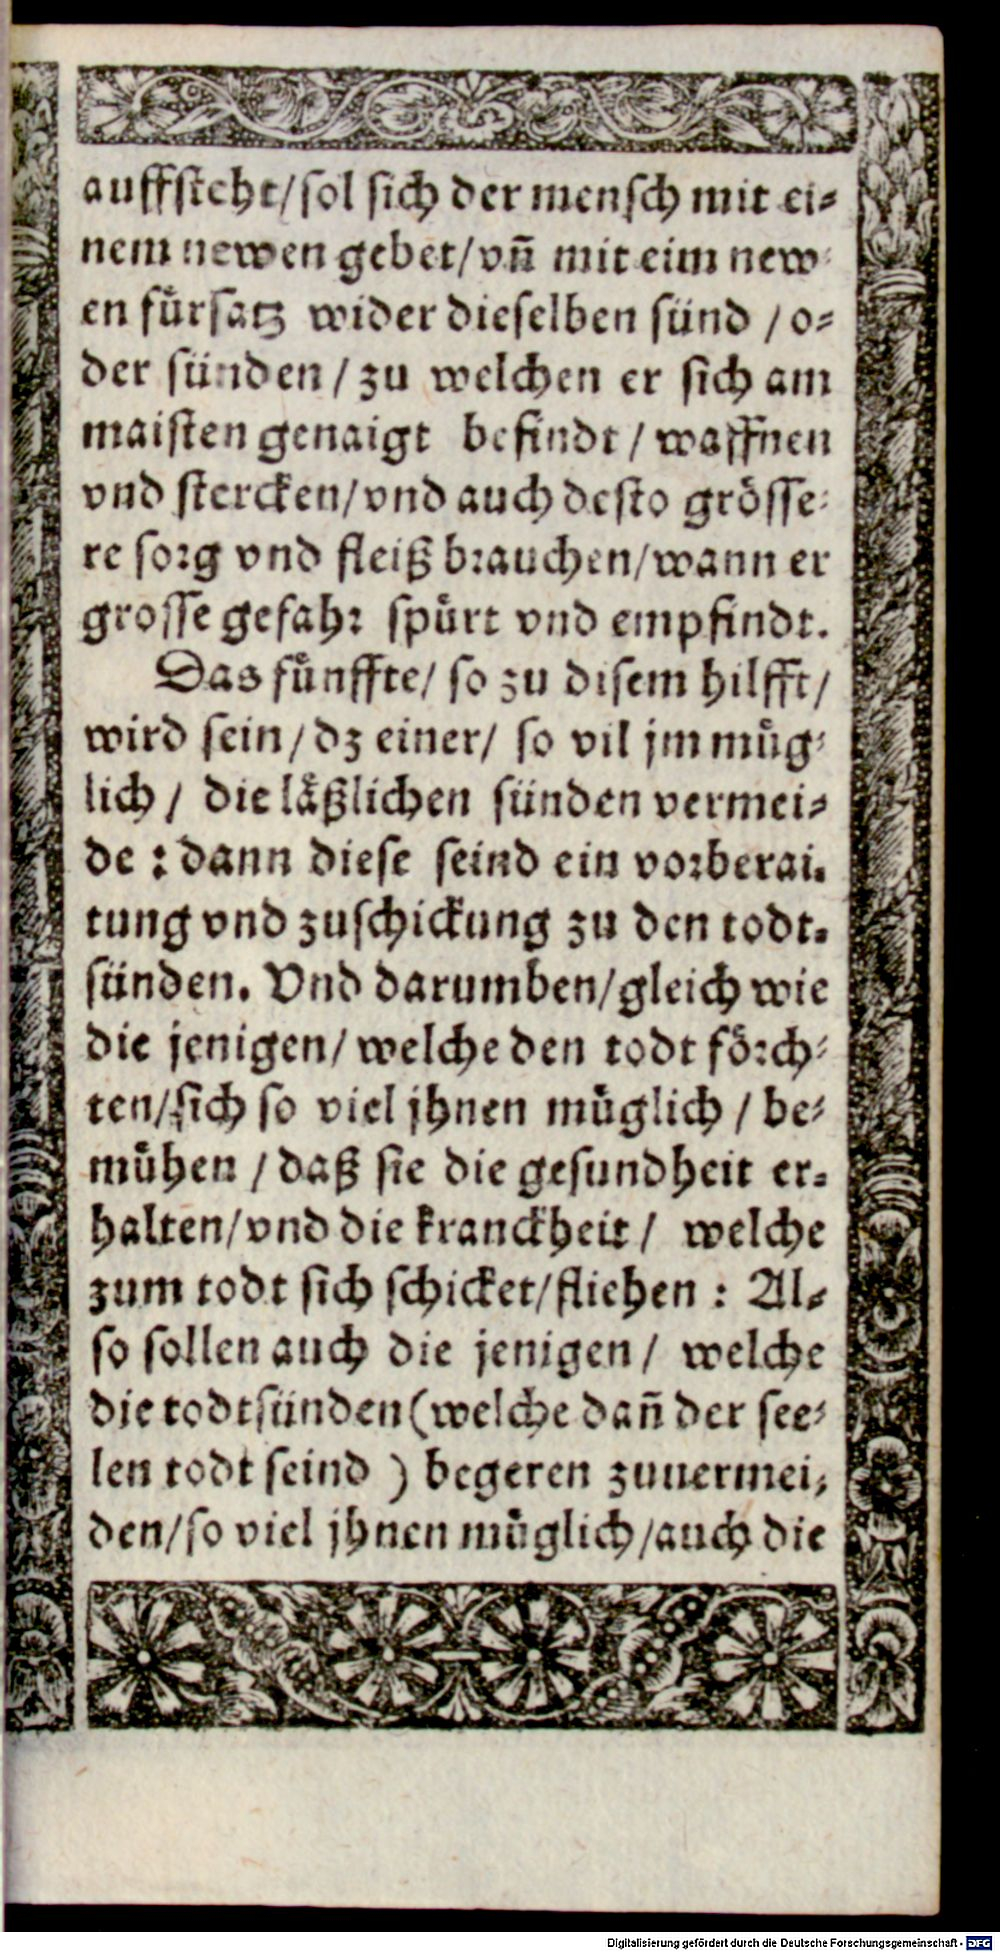 auffsteht/sol sich der mensch mit ei⸗
nem newen gebet/vñ mit eim new⸗
en fuͤrsatz wider dieselben sünd / o⸗
der sünden / zu welchen er sich am
maisten genaigt befindt / waffnen
vnd stercken/vnd auch desto groͤsse⸗
re sorg vnd fleiß brauchen/wann er
grosse gefahr spuͤrt vnd empfindt.
Das fuͤnffte/ so zu disem hilfft/
wird sein/dz einer/ so vil jm muͤg⸗
lich / die laͤßlichen sünden vermei⸗
de : dann diese seind ein vorberai⸗
tung vnd zuschickung zu den todt⸗
sünden. Vnd darumben/gleich wie
die jenigen/ welche den todt foͤrch⸗
ten/sich so viel jhnen muͤglich / be⸗
muͤhen / daß sie die gesundheit er⸗
halten/vnd die kranckheit / welche
zum todt sich schicket/fliehen : Al⸗
so sollen auch die jenigen / welche
die todtsünden (welche dañ der see⸗
len todt seind ) begeren zuuermei⸗
den/so viel jhnen muͤglich/auch die
Digitalisierung gefördert durch die Deutsche Forschungsgemeinschaft - DFG